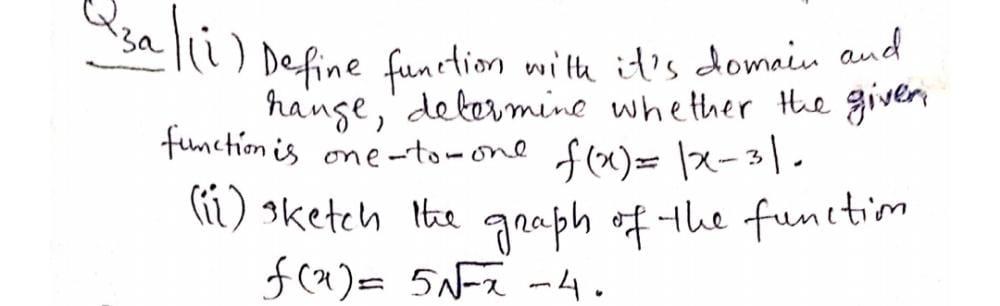 Q3a |(i) Define function with it's domain and
range, determine whether the given
function is one-to-one f(x)= |x-3|.
(ii) sketch the graph of the function
f(x)= 5√-x -4.